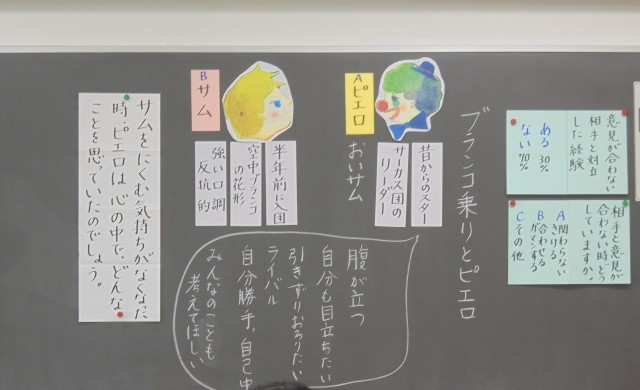 意見が合わない
相手と対立
した経験
ある 30%
ない 70%
相手と意見が
合わない時どう
していますか
A 関わらない
さける
B 合わせる
がまんする
C その他
ブランコ乗りとピエロ
A ピエロ
昔からのスター
サーカス団の
リーダー
おいサム
B サム
半年前に入団
空中ブランコ
の花形
強い口調
反抗的
腹が立つ
自分も目立ちたい
引きずりおろりたい
ライバル
自分勝手,自己中
みんなのことも
考えてほしい
サムをにくむ気持ちがなくなった
時,ピエロは心の中で,どんな
ことを思っていたのでしょう。